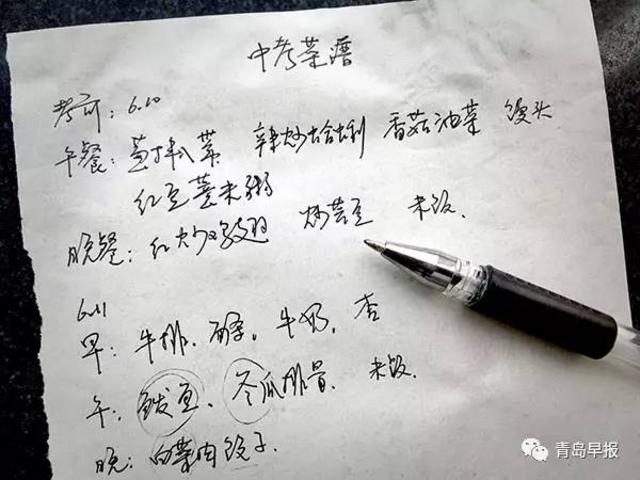 中考菜谱
考前：6.10
午餐： 辣炒蛤利 香菇油菜 馒头
红豆薏米粥
晚餐：红 翅 炒芸豆 米饭.
6.11
早：牛排. 牛奶, 杏
午：鲅鱼、冬瓜排骨. 米饭.
晚：白菜肉饺子.
青岛早报